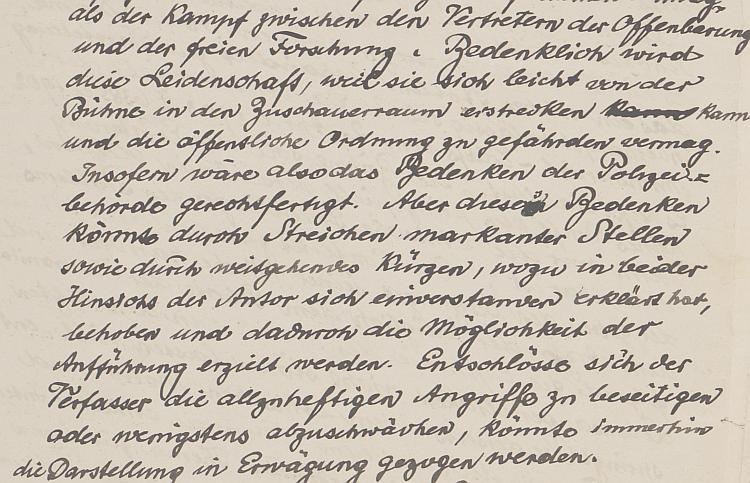 als der Kampf zwischen den Vertretern der Offenbarung
und der freien Forschung. Bedenklich wird
diese Leidenschaft, weil sie sich leicht von der
Bühne in den Zuschauerraum erstrecken kann kann
und die öffentliche Ordnung zu gefährden vermag.
Insofern wäre also das Bedenken der Polizei-
behörde gerechtfertigt. Aber diesen Bedenken
könnte durch Streichen markanter Stellen
sowie durch weitgehendes Kürzen, wozu in beider
Hinsicht der Autor sich einverstanden erklärt hat,
behoben und dadurch die Möglichkeit der
Aufführung erzielt werden. Entschlösse sich der
Verfasser die allzuheftigen Angriffe zu beseitigen
oder wenigstens abzuschwächen, könnte immerhin
die Darstellung in Erwägung gezogen werden.